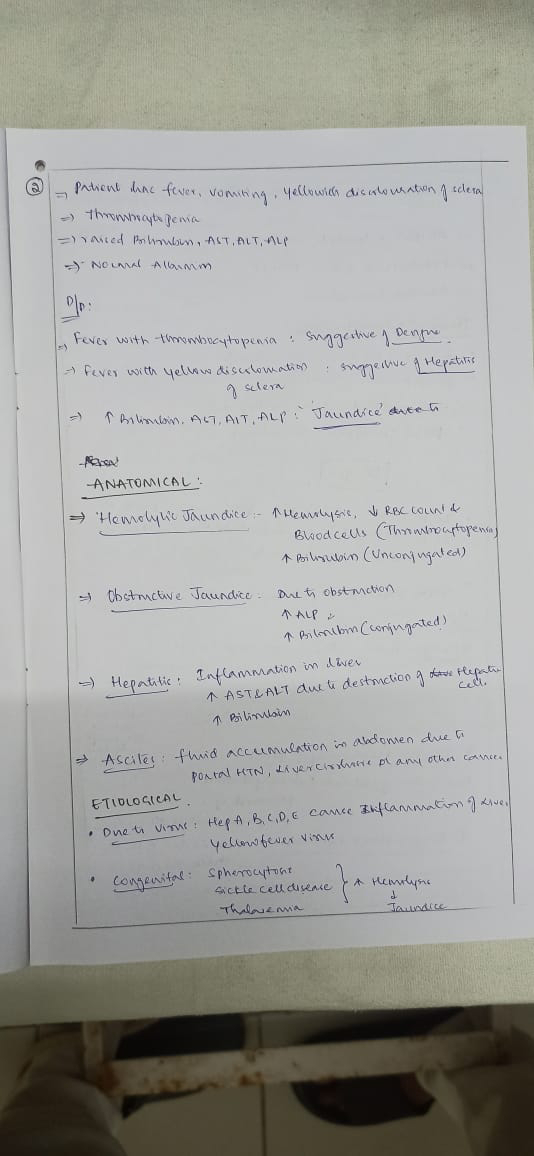 ② → Patient has fever, vomiting, yellowish discolouration of sclera
⇒ Thrombocytopenia
⇒ raised Bilirubin, AST, ALT, ALP
⇒ Normal Albumin
D/D:
⇒ Fever with thrombocytopenia : suggestive of Dengue.
⇒ Fever with yellow discolouration : suggestive of Hepatitis
of sclera
⇒ ↑ Bilirubin, AST, ALT, ALP : 'Jaundice' due to
ANATOMICAL :
⇒ 'Hemolytic Jaundice :- ↑ Hemolysis, ↓ RBC count &
Blood cells (Thrombocytopenia)
↑ Bilirubin (Unconjugated)
⇒ Obstructive Jaundice : Due to obstruction
↑ ALP
↑ Bilirubin (conjugated)
⇒ Hepatitis : Inflammation in liver
↑ AST & ALT due to destruction of Hepatic
cell.
↑ Bilirubin
⇒ Ascites : fluid accumulation in abdomen due to
portal HTN, liver cirrhosis or any other cause.
ETIOLOGICAL.
• Due to virus : Hep A, B, C, D, E cause Inflammation of liver
Yellow fever virus
• Congenital : Spherocytosis
Sickle cell disease } ↑ Hemolysis
↓
Thalasemia Jaundice